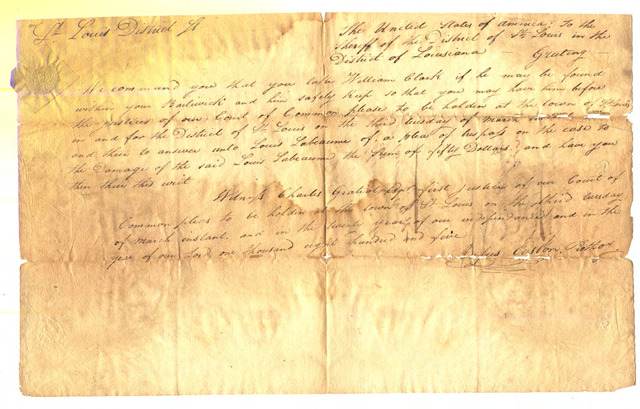 St. Louis District Sct
The United States of America: To the
Sheriff of the District of St. Louis in the
District of Louisiana — Greeting —
We command you that you take William Clark if he may be found
within your Bailiwick and him safely keep so that you may have him before
the justices of our Court of Common pleas to be holden at the town of St. Louis
in and for the District of St. Louis on the third tuesday of March
and then to answer unto Louis Labeaume of a plea of trespass on the case to
the Damage of the said Louis Labeaume the Sum of fifty Dollars; and have you
then there this writ
Witness Charles Gratiot Esqr. first justice of our Court of
Common pleas to be holden at the town of St. Louis on the third tuesday
of March instant, and in the year of our independence and in the
year of our Lord one thousand eight hundred and five